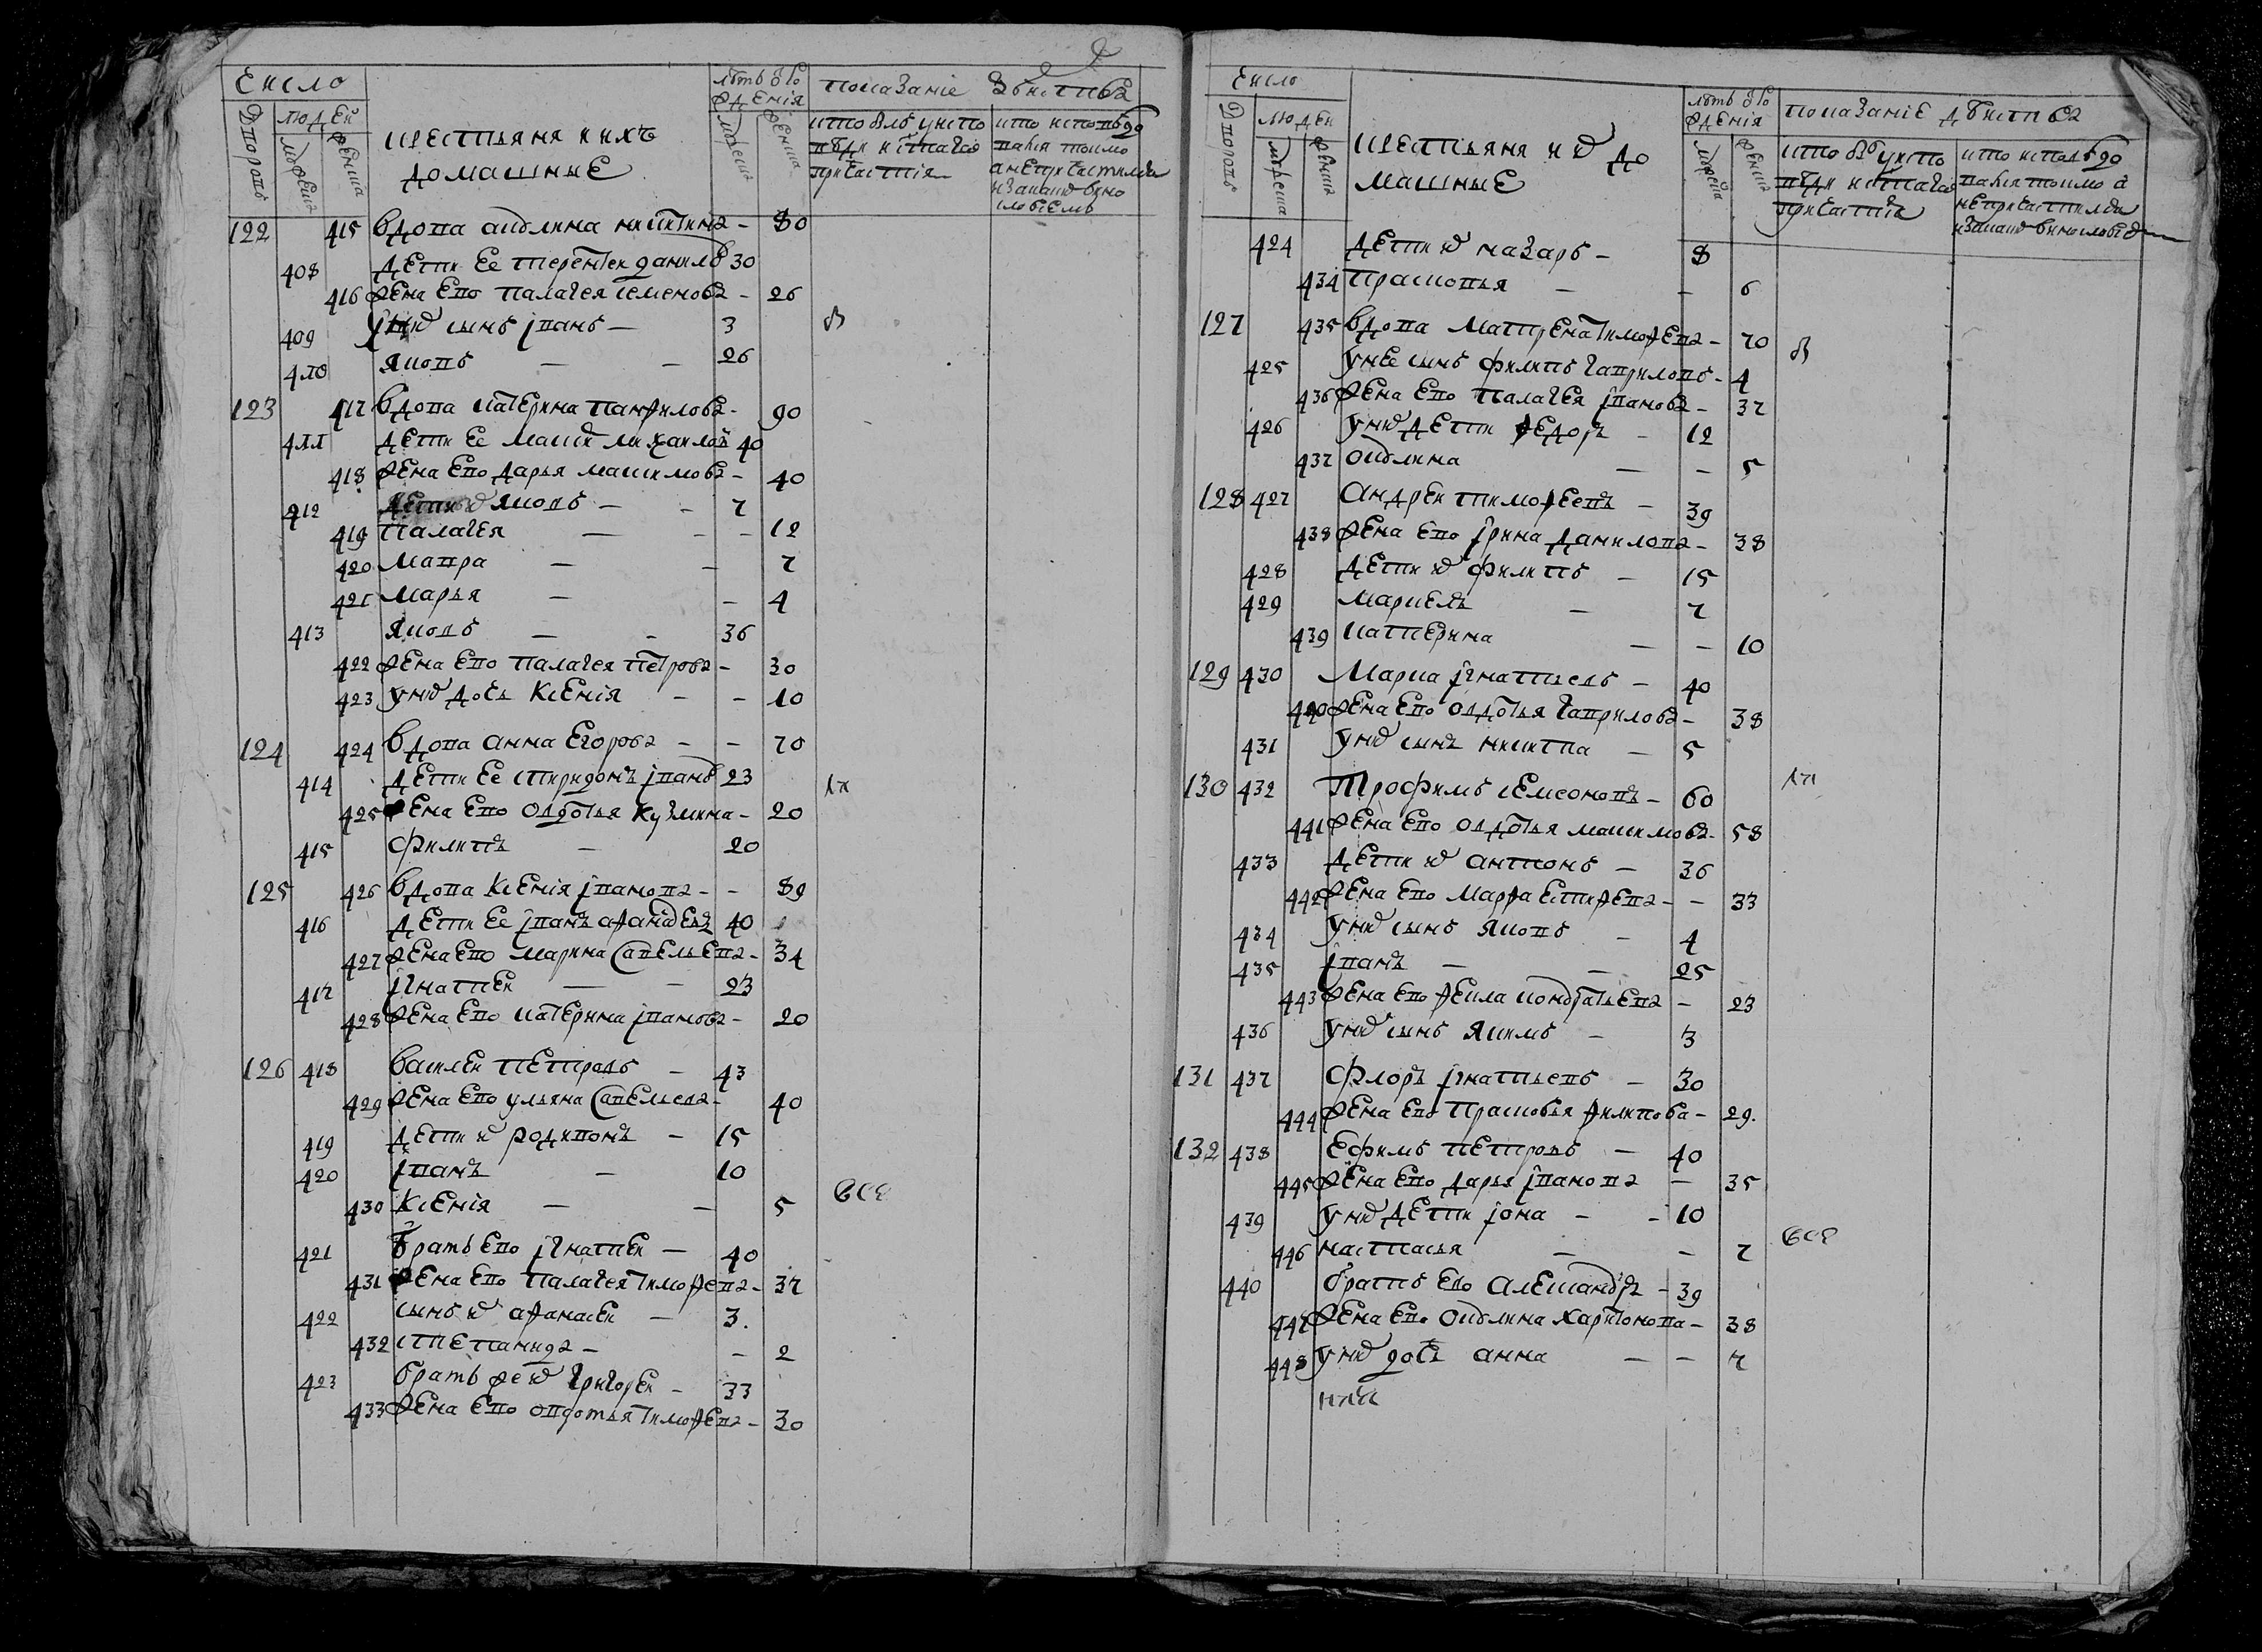 Число
людей
крестьяня и ихъ
домашные
лѣтъ отъ рождения
показаніе действа
122 415 вдова акулина никитина - 80
408 дети ее терентеи данилов 30
416 жена ево палагея семенова - 26
409 у них сынъ іванъ - 3
410 яковъ - - 26
123 417 вдова катерина панфилова - 90
411 дети ее максим михаилов 40
418 жена ево дарья максимова - 40
412 дети их яковъ - - 7
419 палагея - - - 12
420 мавра - - 7
421 марья - - 4
413 яковъ - - 36
422 жена ево палагея петрова - 30
423 у них дочь ксенія - - 10
124 424 вдова анна егорова - - 70
414 дети ее спиридонъ іванов 23
425 жена ево овдотья кузмина - 20
415 филипъ - 20
125 426 вдова ксенія іванова - - 89
416 дети ее іванъ афанасьевъ 40
427 жена ево марина савельева - 34
417 ігнатеи - - 23
428 жена ево катерина іванова - 20
126 418 василеи петровъ - 43
429 жена ево ульяна савельева - 40
419 дети их родивонъ - 15
420 іванъ - 10
430 ксенія - - 5
421 братъ ево ігнатеи - 40
431 жена ево палагея тимофеева - 37
422 сынъ их афанасеи - 3.
432 степанида - - 2
423 братъ же их григореи - 33
433 жена ево овдотья тимофеева - 30
Число
людеи
крестьяня и их до
машные
лѣтъ отъ рождения
показаніе действа
424 дети их назаръ - 8
434 прасковья - - 6
127 435 вдова матрена тимофеева - 70
425 у нее сынъ филипъ гавриловъ - 4
436 жена ево палагея іванова - 37
426 у них дети федоръ - 12
437 окулина - - 5
128 427 андреи тимофеевъ - 39
438 жена ево ірина данилова - 38
428 дети их филипъ - 15
429 маркелъ - 7
439 катерина - - 10
129 430 марка ігнатьевъ - 40
440 жена ево овдотья гаврилова - 38
431 у них сынъ никита - 5
130 432 трофимъ семеоновъ - 60
441 жена ево овдотья максимова - 58
433 дети их антонъ - 36
442 жена ево марфа естифеева - - 33
434 у них сынъ яковъ - 4
435 іванъ - - 25
443 жена ево фекла кондратьева - 23
436 у них сынъ якимъ - 3
131 437 флоръ ігнатьевъ - 30
444 жена ево прасковья филипова - 29.
132 438 ефимъ петровъ - 40
445 жена ево дарья іванова - 35
439 у них дети іона - - 10
446 настасья - - 7
440 братъ ево александръ - 39
447 жена ево окулина харитонова - 38
448 у них дочь анна - - 7